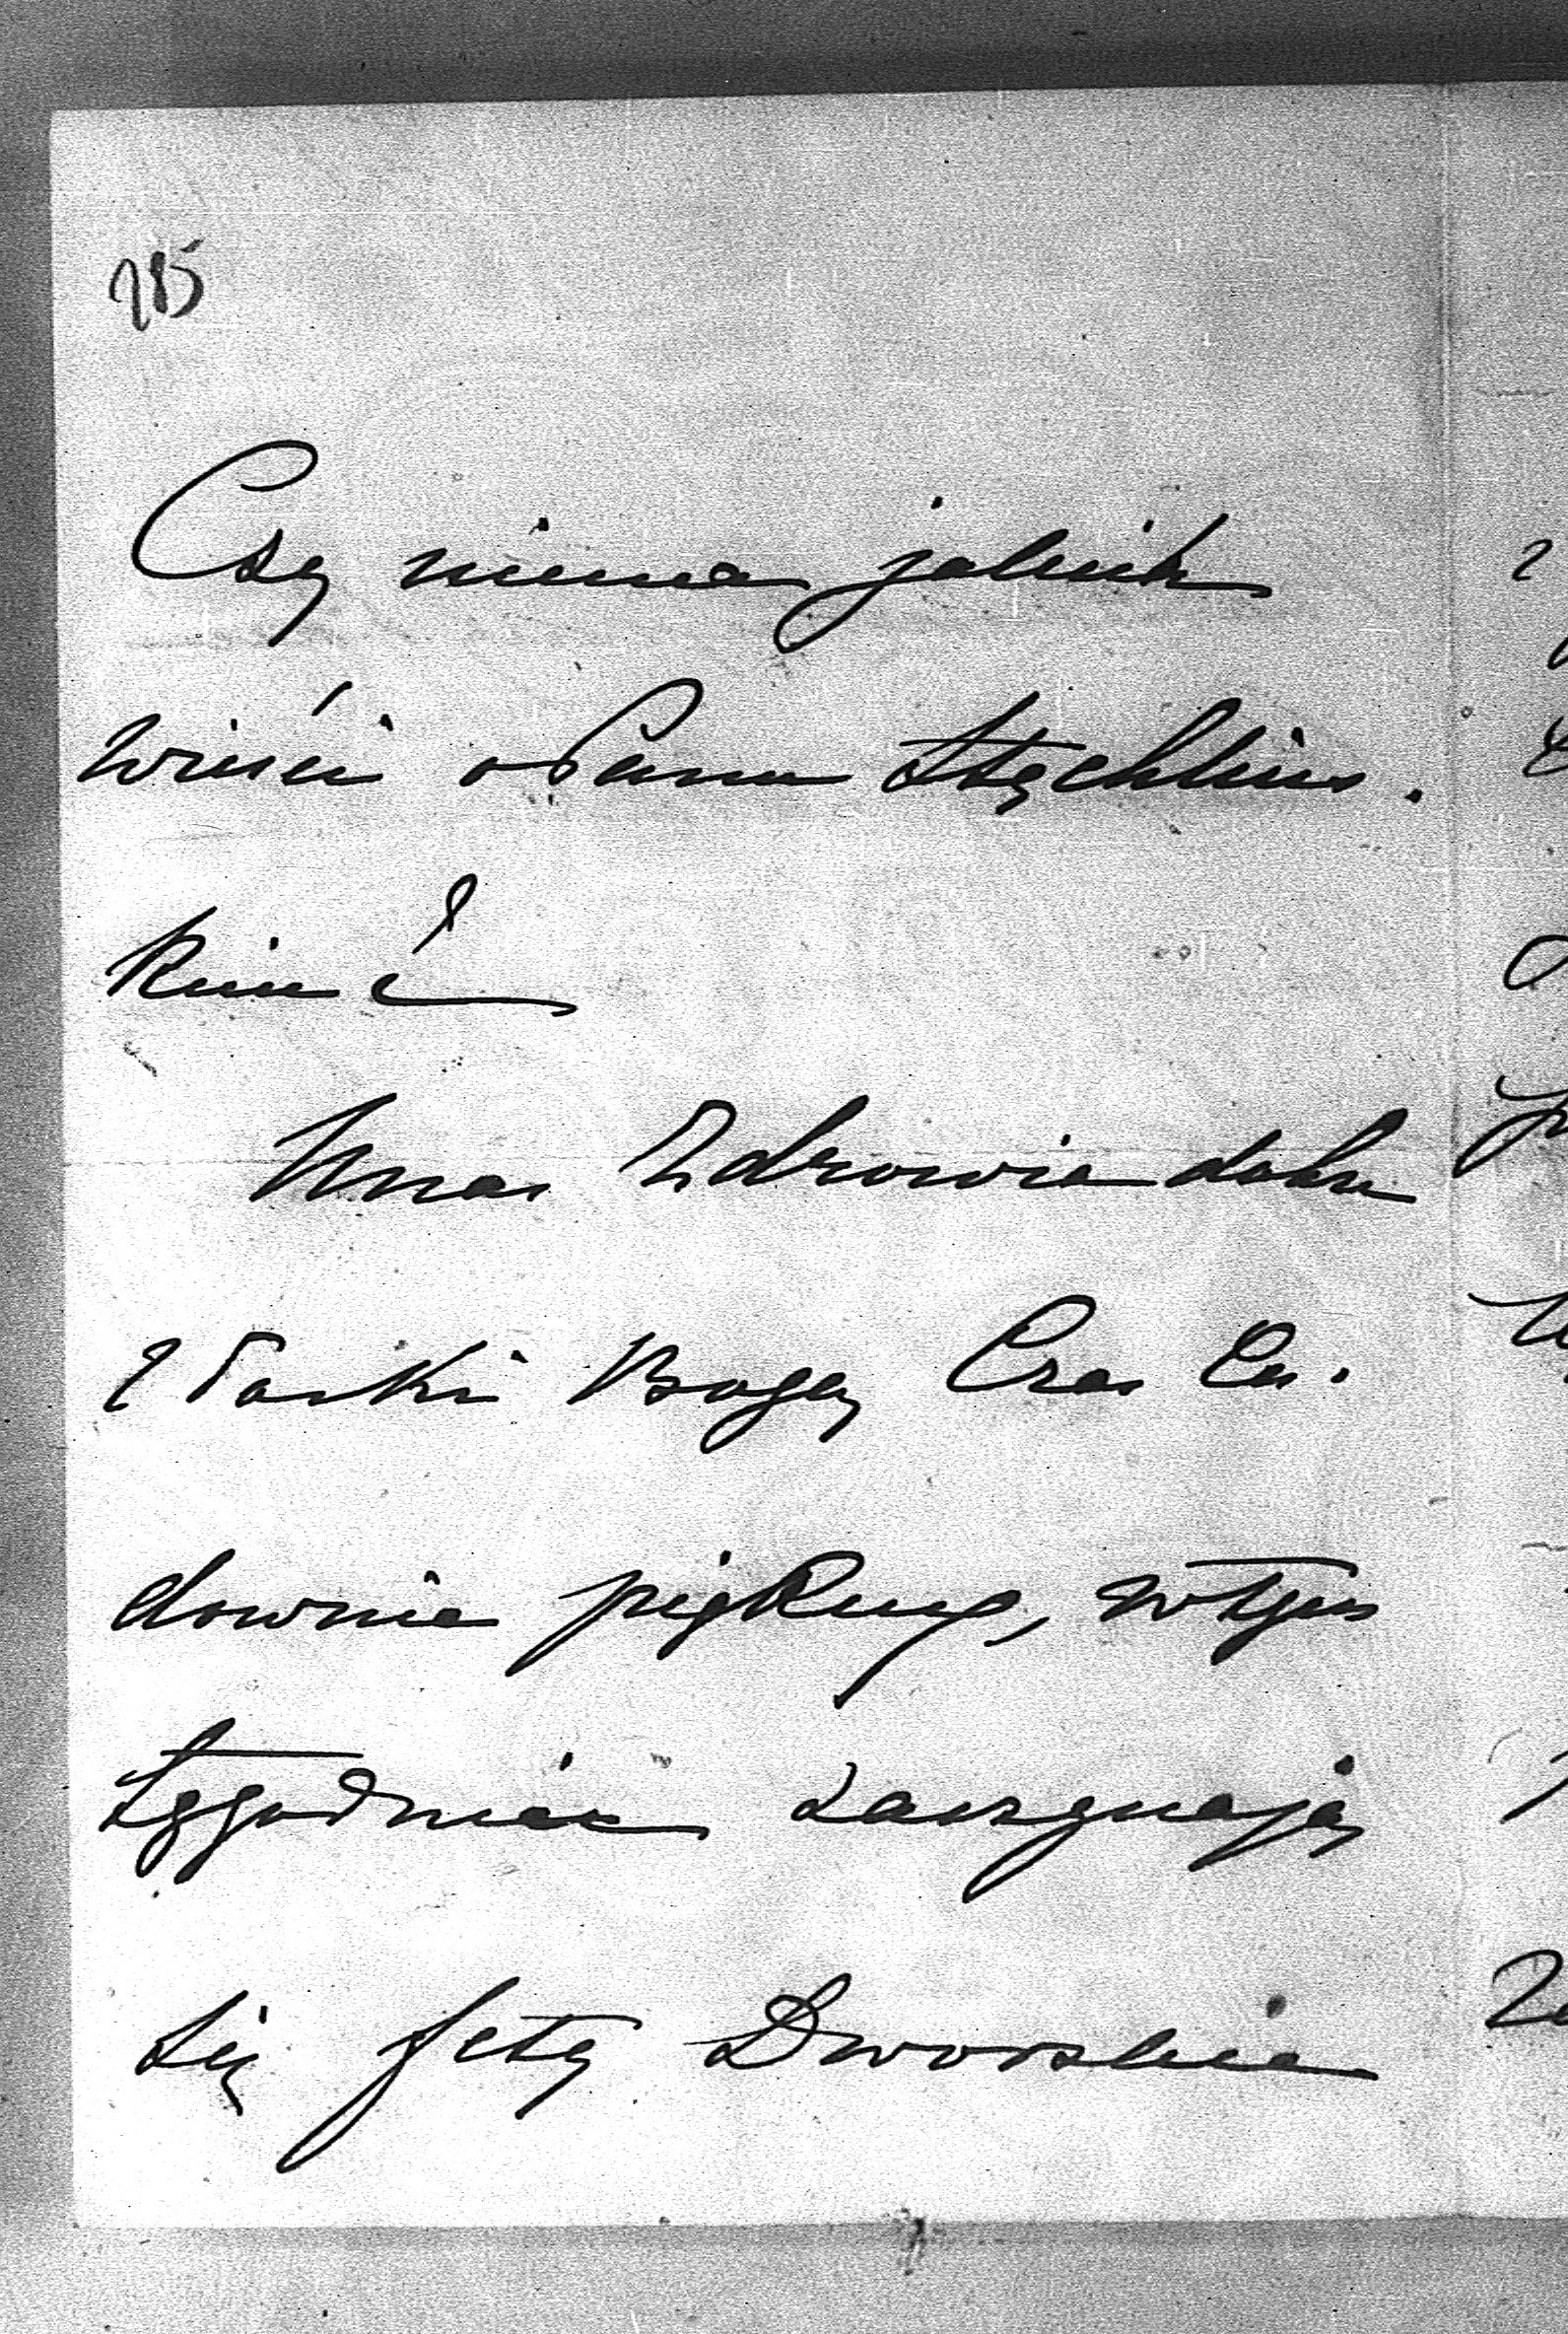 285
Czy niema jakich
wieści o Panu
U nas zdrowie dobre
z łaski Boga, Czas Cu-
downie piękny, w tym
tygodniu zaczynają
się fety Dworskie